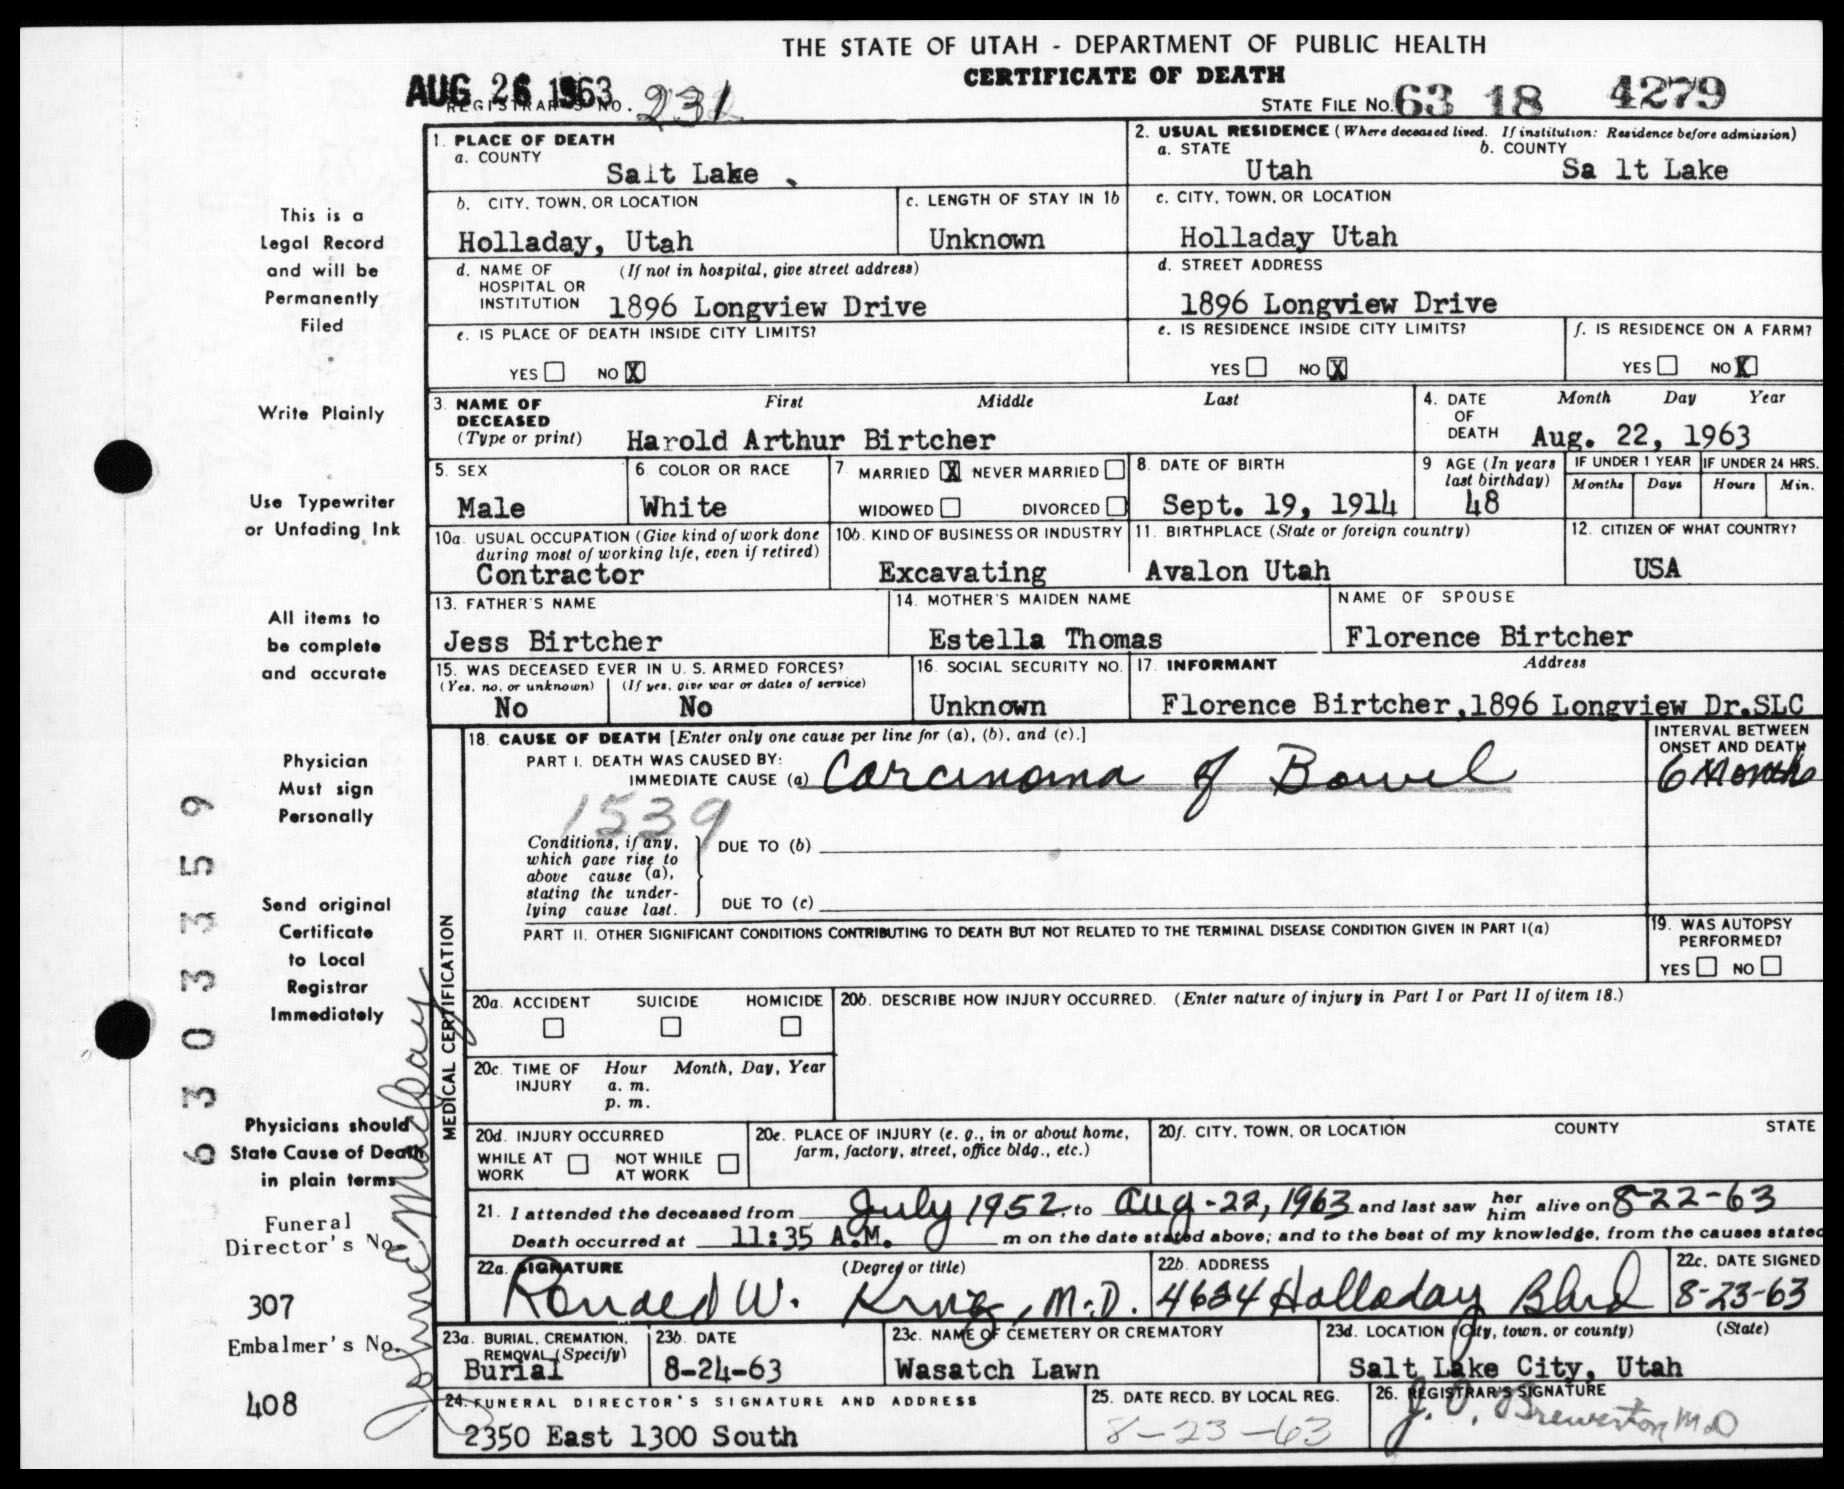 THE STATE OF UTAH - DEPARTMENT OF PUBLIC HEALTH
CERTIFICATE OF DEATH
AUG 26 1963
REGISTRAR'S NO. 231
STATE FILE NO. 63 18 4279
1. PLACE OF DEATH
a. COUNTY
Salt Lake
2. USUAL RESIDENCE (Where deceased lived. If institution: Residence before admission)
a. STATE
Utah
b. COUNTY
Sa lt Lake
b. CITY, TOWN, OR LOCATION
Holladay, Utah
c. LENGTH OF STAY IN 1b
Unknown
c. CITY, TOWN, OR LOCATION
Holladay Utah
d. NAME OF HOSPITAL OR INSTITUTION (If not in hospital, give street address)
1896 Longview Drive
d. STREET ADDRESS
1896 Longview Drive
e. IS PLACE OF DEATH INSIDE CITY LIMITS?
YES NO X
e. IS RESIDENCE INSIDE CITY LIMITS?
YES NO X
f. IS RESIDENCE ON A FARM?
YES NO X
3. NAME OF DECEASED (Type or print)
First Middle Last
Harold Arthur Birtcher
4. DATE OF DEATH
Month Day Year
Aug. 22, 1963
5. SEX
Male
6. COLOR OR RACE
White
7. MARRIED X NEVER MARRIED
WIDOWED DIVORCED
8. DATE OF BIRTH
Sept. 19, 1914
9 AGE (In years last birthday)
48
IF UNDER 1 YEAR
Months Days
IF UNDER 24 HRS.
Hours Min.
10a. USUAL OCCUPATION (Give kind of work done during most of working life, even if retired)
Contractor
10b. KIND OF BUSINESS OR INDUSTRY
Excavating
11. BIRTHPLACE (State or foreign country)
Avalon Utah
12. CITIZEN OF WHAT COUNTRY?
USA
13. FATHER'S NAME
Jess Birtcher
14. MOTHER'S MAIDEN NAME
Estella Thomas
NAME OF SPOUSE
Florence Birtcher
15. WAS DECEASED EVER IN U. S. ARMED FORCES?
(Yes, no, or unknown) (If yes, give war or dates of service)
No No
16. SOCIAL SECURITY NO.
Unknown
17. INFORMANT Address
Florence Birtcher, 1896 Longview Dr.SLC
MEDICAL CERTIFICATION
18. CAUSE OF DEATH [Enter only one cause per line for (a), (b), and (c).]
PART I. DEATH WAS CAUSED BY:
IMMEDIATE CAUSE (a) Carcinoma of Bowel
INTERVAL BETWEEN ONSET AND DEATH
6 Months
1539
Conditions, if any, which gave rise to above cause (a), stating the underlying cause last.
DUE TO (b)
DUE TO (c)
PART II. OTHER SIGNIFICANT CONDITIONS CONTRIBUTING TO DEATH BUT NOT RELATED TO THE TERMINAL DISEASE CONDITION GIVEN IN PART I(a)
19. WAS AUTOPSY PERFORMED?
YES NO
20a. ACCIDENT SUICIDE HOMICIDE
20b. DESCRIBE HOW INJURY OCCURRED. (Enter nature of injury in Part I or Part II of item 18.)
20c. TIME OF INJURY Hour Month, Day, Year
a. m.
p. m.
20d. INJURY OCCURRED
WHILE AT WORK NOT WHILE AT WORK
20e. PLACE OF INJURY (e. g., in or about home, farm, factory, street, office bldg., etc.)
20f. CITY, TOWN, OR LOCATION COUNTY STATE
21. I attended the deceased from July 1952, to Aug-22, 1963 and last saw her him alive on 8-22-63
Death occurred at 11:35 A.M. m on the date stated above; and to the best of my knowledge, from the causes stated
22a. SIGNATURE (Degree or title)
Ronald W. King, M.D.
22b. ADDRESS
4624 Holladay Blvd
22c. DATE SIGNED
8-23-63
23a. BURIAL, CREMATION, REMOVAL (Specify)
Burial
23b. DATE
8-24-63
23c. NAME OF CEMETERY OR CREMATORY
Wasatch Lawn
23d. LOCATION (City, town, or county) (State)
Salt Lake City, Utah
24. FUNERAL DIRECTOR'S SIGNATURE AND ADDRESS
2350 East 1300 South
25. DATE RECD. BY LOCAL REG.
8-23-63
26. REGISTRAR'S SIGNATURE
Brewerton MD
This is a
Legal Record
and will be
Permanently
Filed
Write Plainly
Use Typewriter
or Unfading Ink
All items to
be complete
and accurate
Physician
Must sign
Personally
Send original
Certificate
to Local
Registrar
Immediately
Physicians should
State Cause of Death
in plain terms
Funeral
Director's No.
307
Embalmer's No.
408
6303359